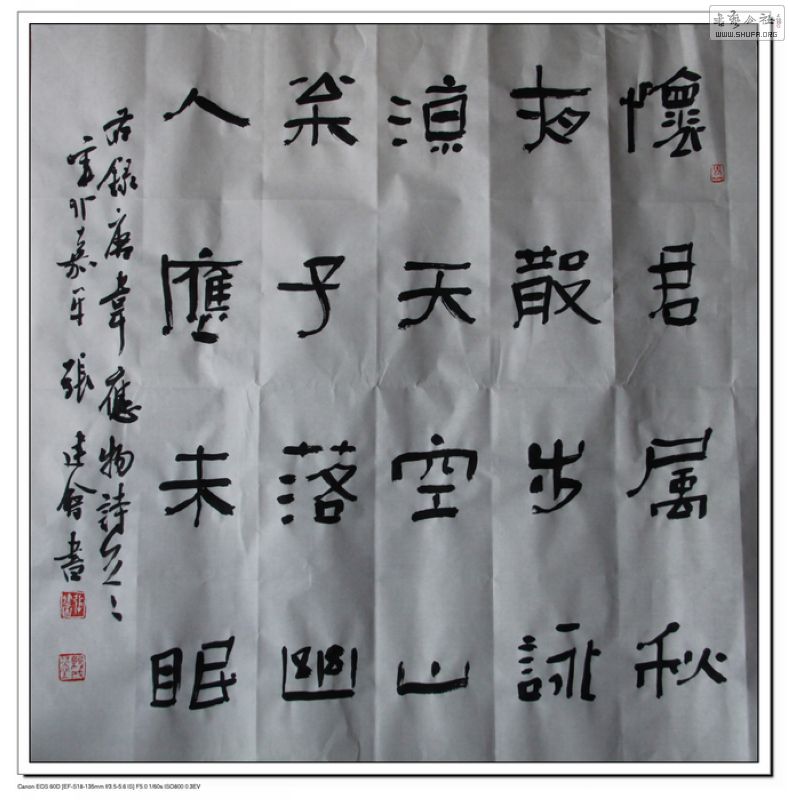 懷君属秋
夜散步詠
涼天空山
枀子落幽
人應未眠
右録唐韋應物詩
辛卯嘉平 張建會書
書藝公社
WWW.SHUFA.ORG
Canon EOS 60D [EF-S18-135mm f/3.5-5.6 IS] F5.0 1/60s ISO800 0.3EV